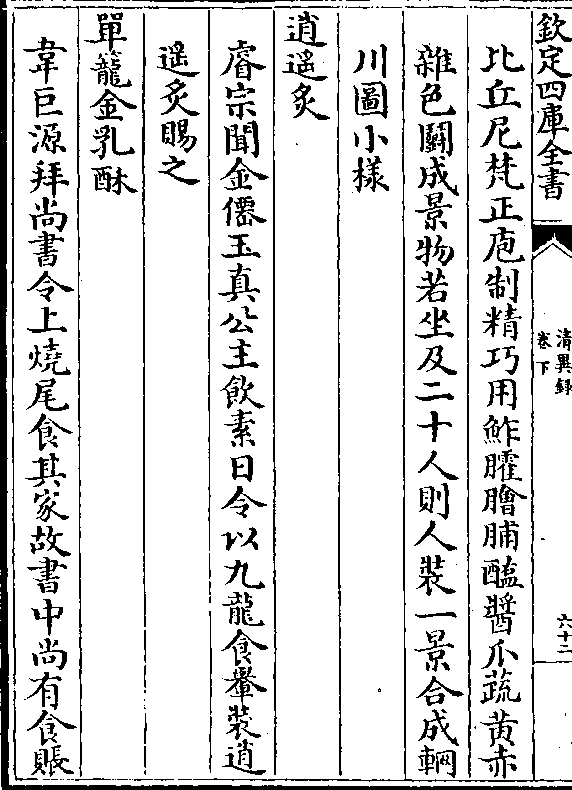 欽定四庫全書
清異録
卷下
六十二
比丘尼梵正庖制精巧用鮓臛膾脯醢醬爪蔬黄赤
雜色鬬成景物若坐及二十人則人裝一景合成輞
川圖小樣
逍遥炙
睿宗聞金僊玉真公主飲素日令以九龍食轝裝逍
遥炙賜之
單籠金乳酥
韋巨源拜尚書令上燒尾食其家故書中尚有食賬